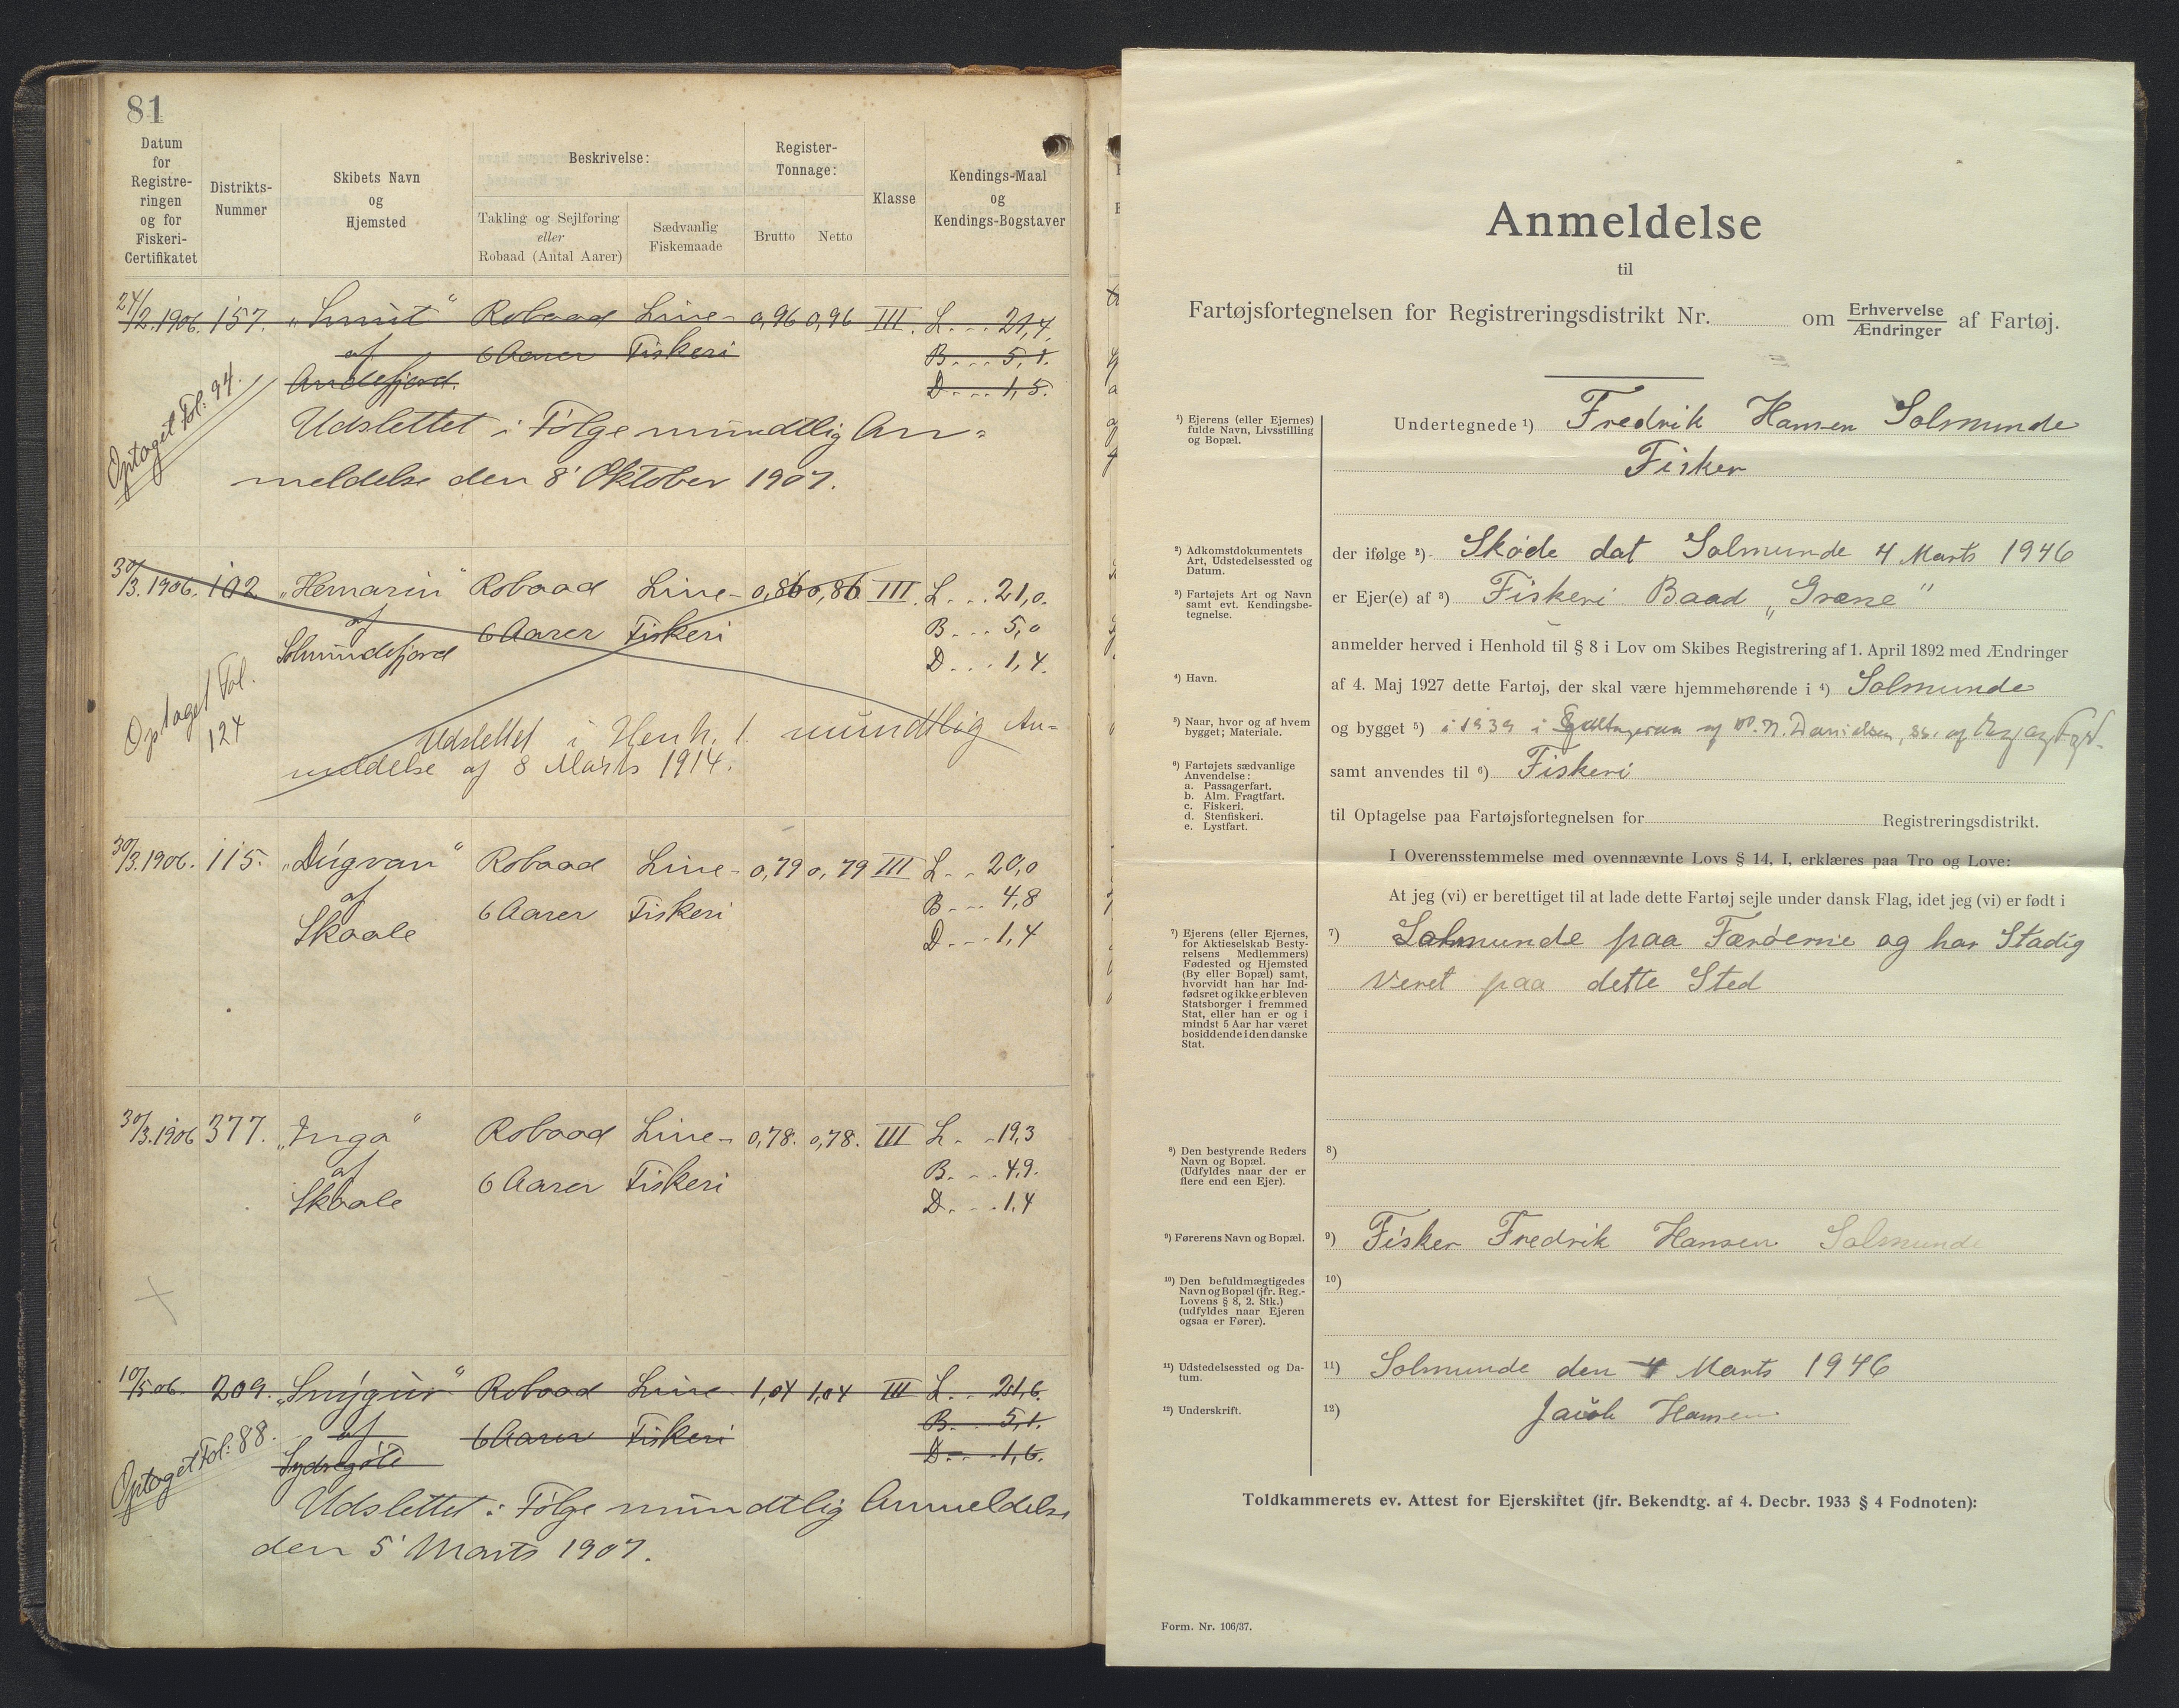 81
Datum for Registre-ringen og for Fiskeri-Certifikatet
Distrikts-Nummer
Skibets Navn og Hjemsted
Beskrivelse:
Takling og Sejlføring eller Robaad (Antal Aarer)
Sædvanlig Fiskemaade
Register-Tonnage:
Brutto
Netto
Klasse
Kendings-Maal og Kendings-Bogstaver
24/2.1906. 157. „ Robaad Line- 0,96 0,96 III. L... 21,4.
af 6 Aarer Fiskeri B... 5,1.
Andefjord. D... 1,5.
Optaget Fol: 94.
Udslettet i Følge mundtlig An=
meldelse den 8' Oktober 1907.
30/3.1906. 102 „Hemarin“ Robaad Line- 0,86 0,86 III. L... 21,0.
af 6 Aarer Fiskeri B... 5,0
Solmundefjord D... 1,4.
Optaget Fol.
124
Udslettet i Henh. t. mundtlig An=
meldelse af 8 Marts 1914.
30/3.1906. 115. „Dúgvan“ Robaad Line- 0,79 0,79 III L.. 20,0
af 6 Aarer Fiskeri B... 4,8
Skaale D... 1,4
30/3.1906 377. „Inga“ Robaad Line- 0,78. 0,78. III L.. 19,3
af 6 Aarer Fiskeri B.... 4,9.
Skaale D... 1,4
10/5.06. 209. „Smýgur“ Robaad Line- 1,04 1,04 III L.. 21,6.
af 6 Aarer Fiskeri B... 5,1.
Sydregøte D... 1,6.
Optaget Fol: 88.
Udslettet i Følge mundtlig Anmeldelse
den 5' Marts 1907.
Anmeldelse
til
Fartøjsfortegnelsen for Registreringsdistrikt Nr. om Erhvervelse Ændringer af Fartøj.
¹) Ejerens (eller Ejernes)
fulde Navn, Livsstilling
og Bopæl.
Undertegnede ¹) Fredrik Hansen Solmunde
Fisker
²) Adkomstdokumentets
Art, Udstedelsessted og
Datum.
der ifølge ²) Skøde dat Solmunde 4 Marts 1946
³) Fartøjets Art og Navn
samt evt. Kendingsbe-
tegnelse.
er Ejer(e) af ³) Fiskeri Baad „Græne“
anmelder herved i Henhold til § 8 i Lov om Skibes Registrering af 1. April 1892 med Ændringer
⁴) Havn.
af 4. Maj 1927 dette Fartøj, der skal være hjemmehørende i ⁴) Solmunde
⁵) Naar, hvor og af hvem
bygget; Materiale.
og bygget ⁵) i 1939 i af Danielsen, af og
⁶) Fartøjets sædvanlige
Anvendelse:
a. Passagerfart.
b. Alm. Fragtfart.
c. Fiskeri.
d. Stenfiskeri.
e. Lystfart.
samt anvendes til ⁶) Fiskeri
til Optagelse paa Fartøjsfortegnelsen for Registreringsdistrikt.
I Overensstemmelse med ovennævnte Lovs § 14, I, erklæres paa Tro og Love:
At jeg (vi) er berettiget til at lade dette Fartøj sejle under dansk Flag, idet jeg (vi) er født i
⁷) Ejerens (eller Ejernes,
for Aktieselskab Besty-
relsens Medlemmers)
Fødested og Hjemsted
(By eller Bopæl) samt,
hvorvidt han har Ind-
fødsret og ikke er bleven
Statsborger i fremmed
Stat, eller han er og i
mindst 5 Aar har været
bosiddende i den danske
Stat.
⁷) Solmunde paa Færøerne og har Stadig
Veret paa dette Sted
⁸) Den bestyrende Reders
Navn og Bopæl.
(Udfyldes naar der er
flere end een Ejer).
⁸)
⁹) Førerens Navn og Bopæl.
⁹) Fisker Fredrik Hansen Solmunde
¹⁰) Den befuldmægtigedes
Navn og Bopæl (jfr. Reg.-
Lovens § 8, 2. Stk.)
(udfyldes naar Ejeren
ogsaa er Fører).
¹⁰)
¹¹) Udstedelsessted og Da-
tum.
¹¹) Solmunde den 4 Marts 1946
¹²) Underskrift.
¹²) Jacob Hansen
Toldkammerets ev. Attest for Ejerskiftet (jfr. Bekendtg. af 4. Decbr. 1933 § 4 Fodnoten):
Form. Nr. 106/37.